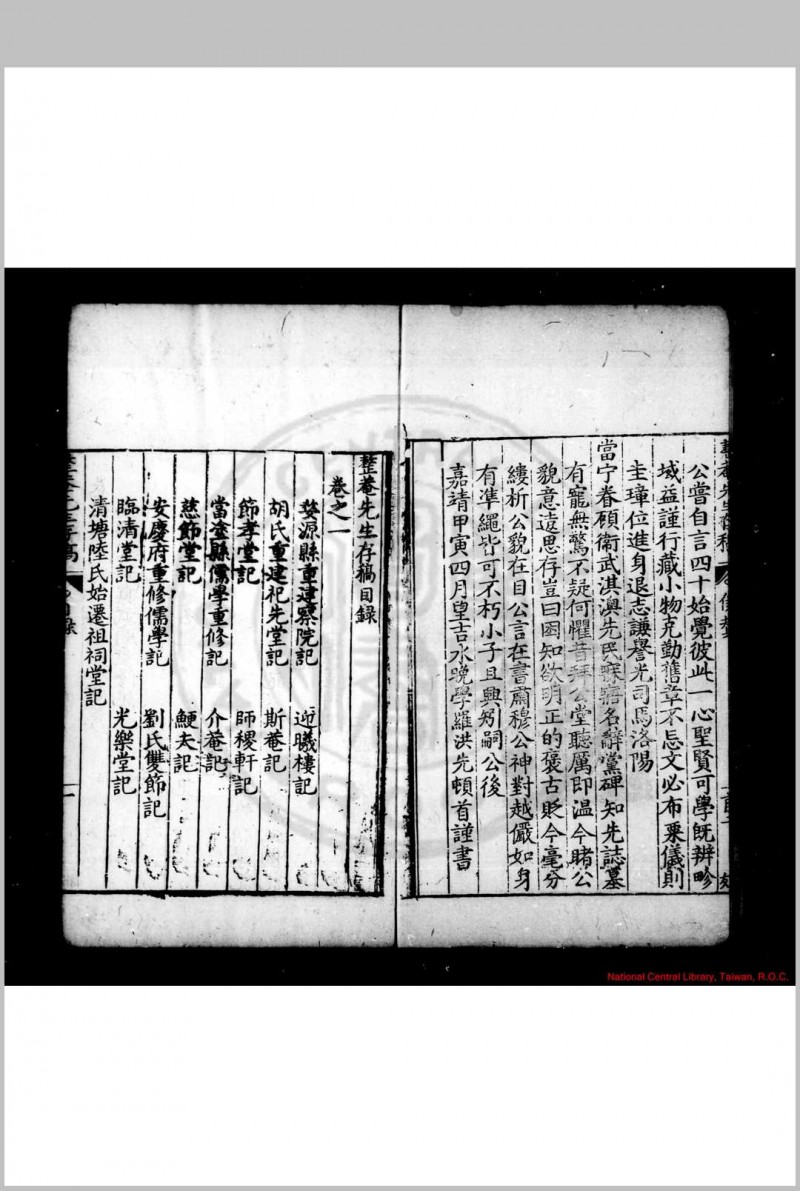 公嘗自言四十始覺彼此一心聖賢可學既辨畛
域益謹行藏小物克勤舊章不忘文必布粟儀則
圭璋位進身退志謙譽光司馬洛陽
當宁眷顧衛武淇澳先民寤寐名辭黨碑知先誌墓
有寵無驚不疑何懼昔拜公堂聽厲即温今睹公
貌意遠思存豈曰困知欲明正的褒古貶今毫分
縷析公貌在目公言在書肅穆公神對越儼如身
有凖繩皆可不朽小子且興矧嗣公後
嘉靖甲寅四月望吉水晚學羅洪先頓首謹書
整菴先生存稿目錄
卷之一
婺源縣重建察院記 迎曦樓記
胡氏重建祀先堂記 斯菴記
節孝堂記 師稷軒記
當塗縣儒學重修記 介菴記
慈節堂記 鯁夫記
安慶府重修儒學記 劉氏雙節記
臨清堂記 光樂堂記
清塘陸氏始遷祖祠堂記
目錄
一
National Central Library, Taiwan, R.O.C.